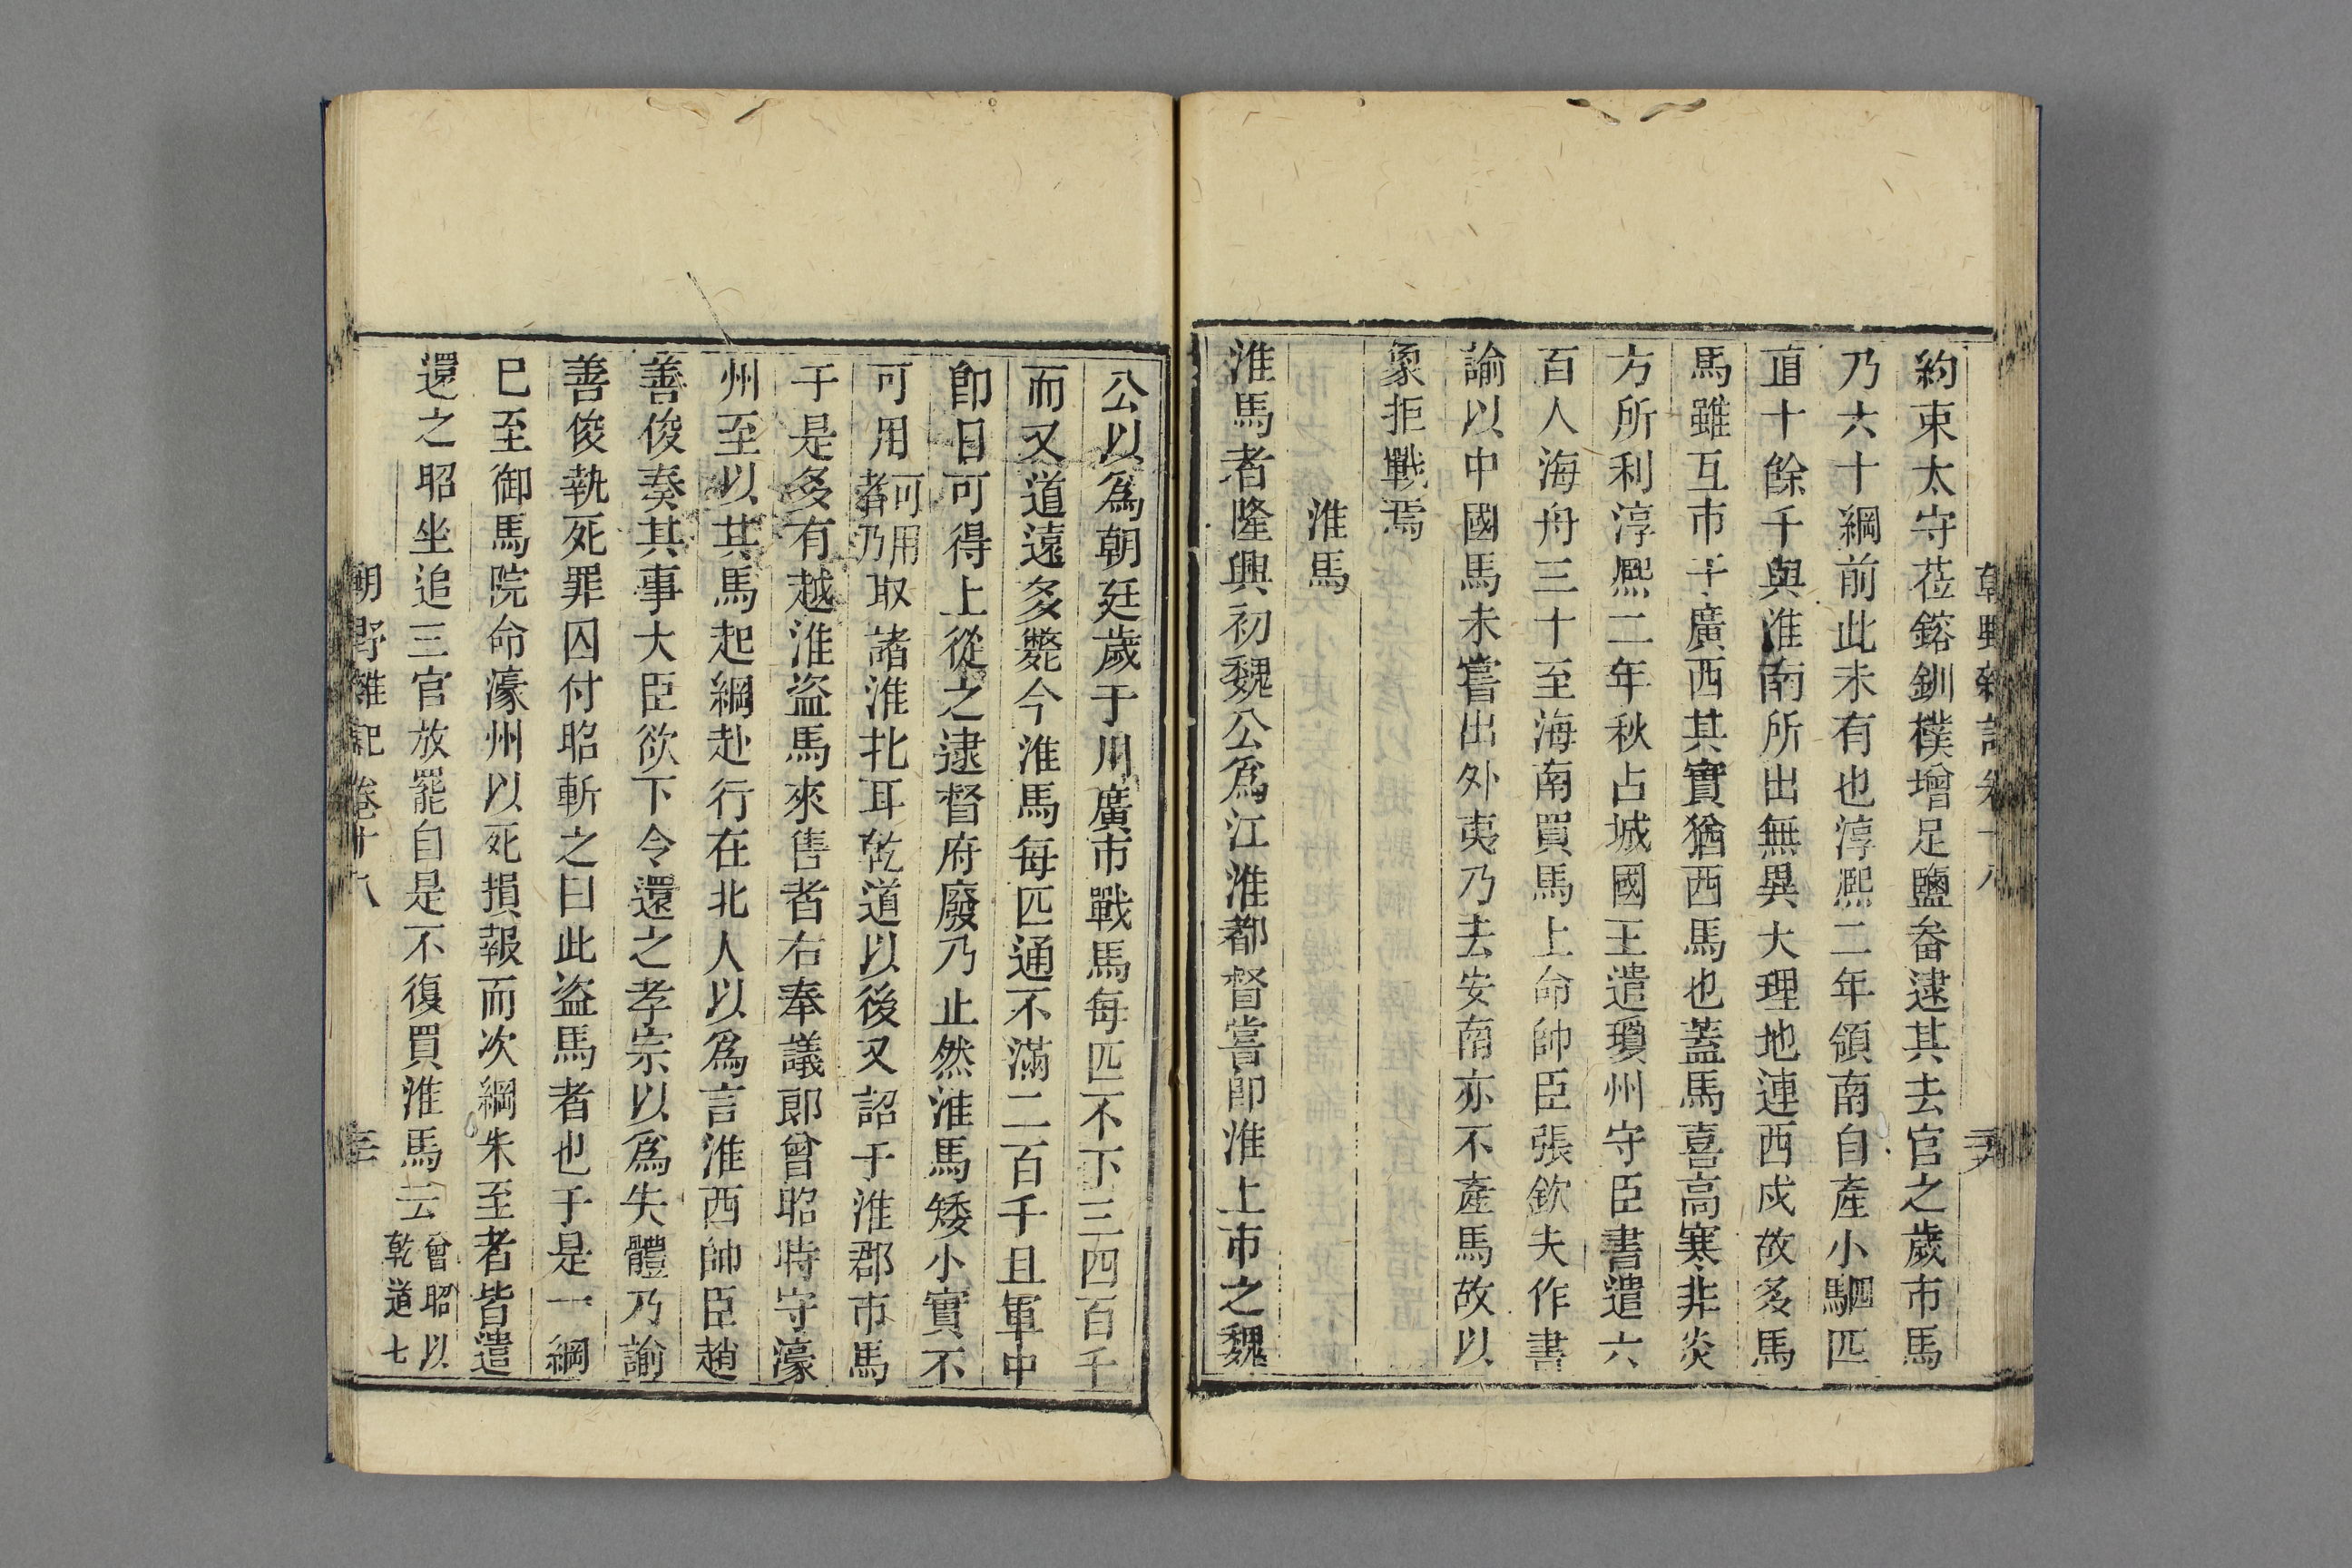 約束太守莅鎔釧樸增足鹽畨逮其去官之歲市馬
乃六十綱前此未有也淳熈二年領南自產小駟匹
直十餘千與淮南所出無異大理地連西戍故多馬
馬雖互市于廣西其實猶西馬也蓋馬喜高寒非炎
方所利淳熈二年秋占城國王遣瓊州守臣書遣六
百人海舟三十至海南買馬上命帥臣張欽夫作書
諭以中國馬未嘗出外夷乃去安南亦不產馬故以
象拒戰焉
淮馬
淮馬者隆興初魏公爲江淮都督嘗卽淮上市之魏
公以爲朝廷歲于川廣市戰馬每匹不下三四百千
而又道遠多斃今淮馬每匹通不滿二百千且軍中
卽日可得上從之逮督府廢乃止然淮馬矮小實不
可用可用者乃取諸淮北耳乾道以後又詔于淮郡市馬
于是多有越淮盜馬來售者右奉議郞曾昭時守濠
州至以其馬起綱赴行在北人以爲言淮西帥臣趙
善俊奏其事大臣欲下令還之孝宗以爲失體乃諭
善俊執死罪囚付昭斬之曰此盜馬者也于是一綱
巳至御馬院命濠州以死損報而次綱朱至者皆遣
還之昭坐追三官放罷自是不復買淮馬云曾昭以乾道七
朝野雜記卷十八